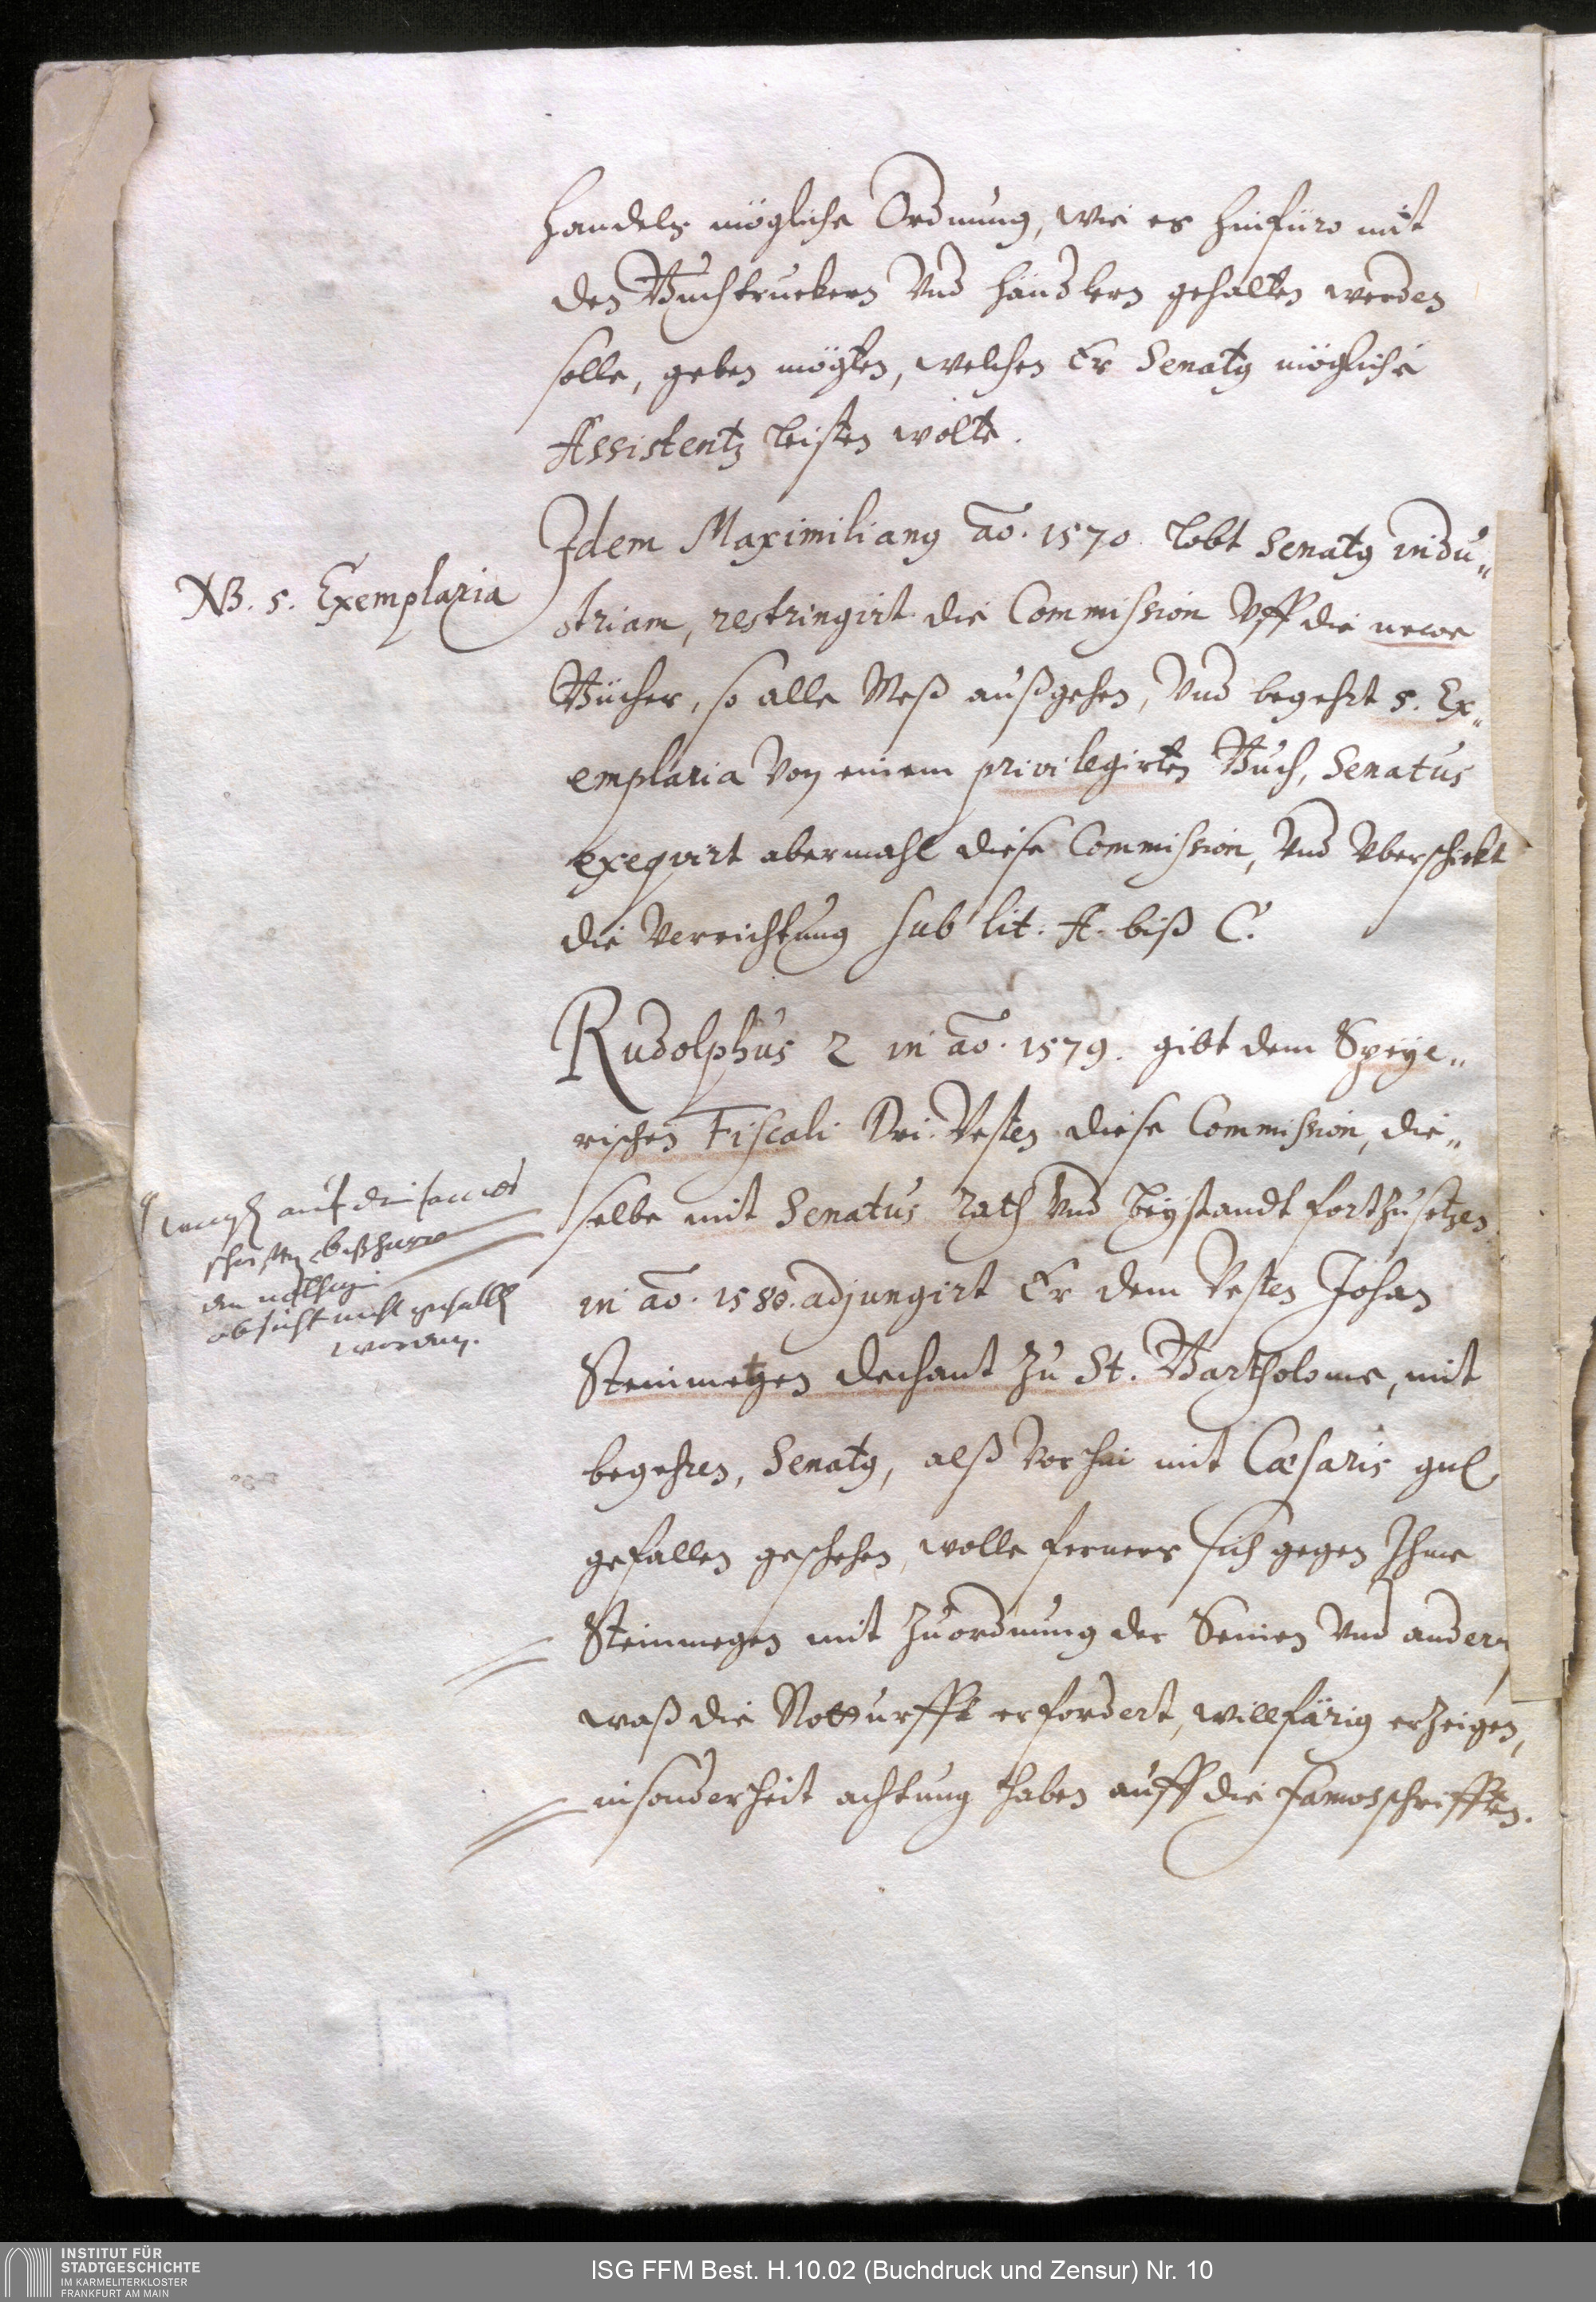 handels mögliche Ordnung, wie es hinfüro mit
den Buchtruckern Vnd händlern gehalten werden
solle, geben mögten, welchen Er Senatus mögliche
Assistentz leisten wölte.
NB. 5. Exemplaria
Idem Maximilianus ao. 1570. lobt Senatus indu„
striam, restringirt die Commission Vff die newe
Bücher, so alle Meß außgehen, Vnd begehrt 5. Ex„
emplaria Von einem privilegirten Buch, Senatus
exequirt abermahl diese Commission, Vnd Vberschickt
die Verrichtung sub lit. A. biß C.
Rudolphus 2 in ao. 1579. gibt dem Speye„
rischen Fiscali Dri. Vesten diese Commission, die„
selbe mit Senatus rath Vnd beystandt forthzusetzen.
in ao. 1580. adjungirt Er dem Vesten Johan
Steinmetzen dechant zu St. Bartholome, mit
begehren, Senatus, alß Vorhin mit Cæsaris
gefallen geschehen, wolle ferners sich gegen Ihme
Steinmezen mit Zuordnung der Seinen Vnd andern
waß die Notturfft erfordert, willfärig erzeigen,
insonderheit achtung haben auff die famosschrifften.
auf die famos
schriften bißhero
die nöthige
obsicht nicht gehalten
worden.
INSTITUT FÜR
STADTGESCHICHTE
IM KARMELITERKLOSTER
FRANKFURT AM MAIN
ISG FFM Best. H.10.02 (Buchdruck und Zensur) Nr. 10